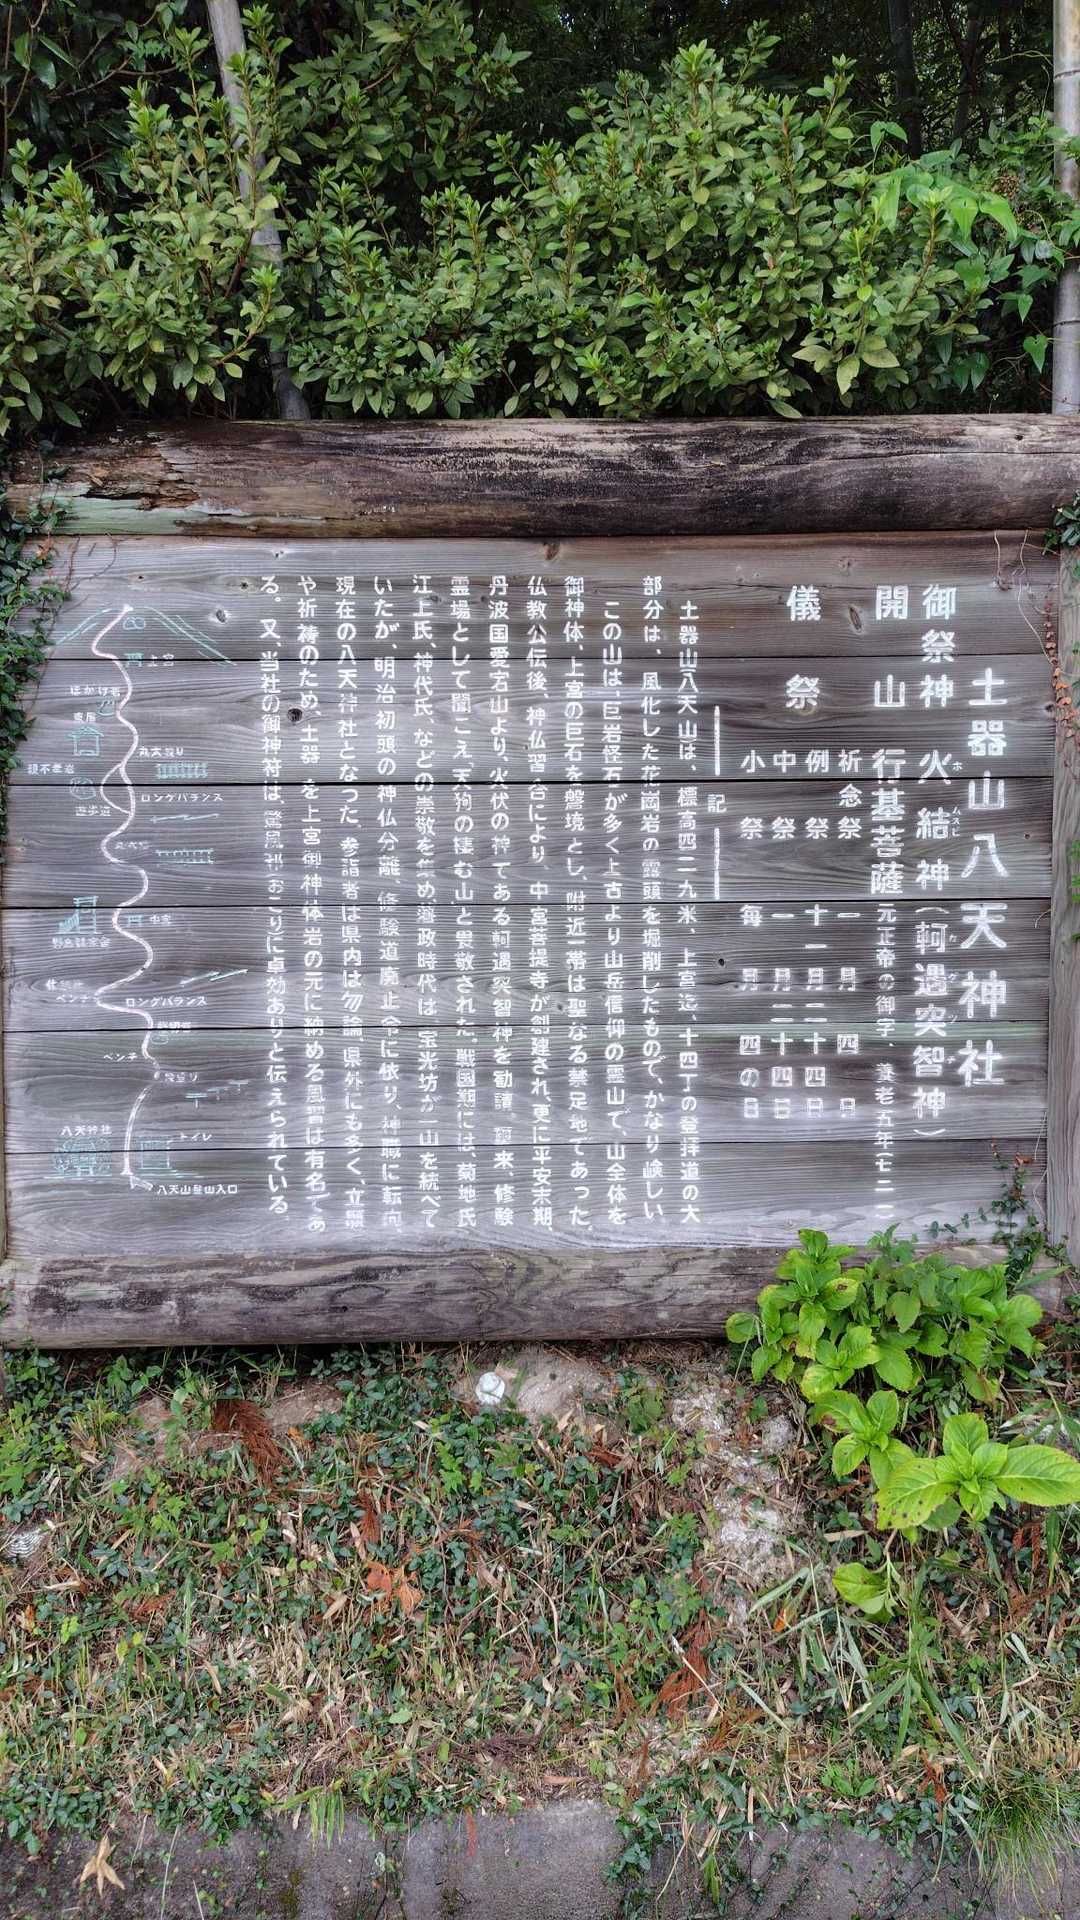 土器山八天神社
御祭神 火結神(軻遇突智神)
ホムスビ カグツチ
開山 行基菩薩 元正帝の御宇、養老五年(七二一
儀祭
祈念祭 一月四日
例祭 十一月二十四日
中祭 一月二十四日
小祭 毎月四の日
記
土器山八天山は、標高四二九米、上宮迄、十四丁の登拝道の大
部分は、風化した花崗岩の露頭を堀削したもので、かなり峡しい
この山は、巨岩怪石が多く上古より山岳信仰の霊山で、山全体を
御神体、上宮の巨石を磐境とし、附近一帯は聖なる禁足地であった。
仏教公伝後、神仏習合により、中宮菩提寺が創建され、更に平安末期、
丹波国愛宕山より、火伏の神である軻遇突智神を勧請、爾来、修験
霊場として聞こえ、天狗の棲む山と畏敬された。戦国期には、菊地氏
江上氏、神代氏、などの崇敬を集め、藩政時代は、宝光坊が一山を統べて
いたが、明治初頭の神仏分離、修験道廃止令に依り、神職に転向
現在の八天神社となった。参詣者は県内は勿論、県外にも多く、立願
や祈祷のため、土器を上宮御神体岩の元に納める風習は有名であ
る。又、当社の御神符は、驚風邪(おこり)に卓効ありと伝えられている
上宮
ほかけ岩
東屋
丸太渡り
親不孝岩
ロングバランス
遊歩道
中宮
ベンチ
ロングバランス
ベンチ
トイレ
八天神社
八天山登山入口